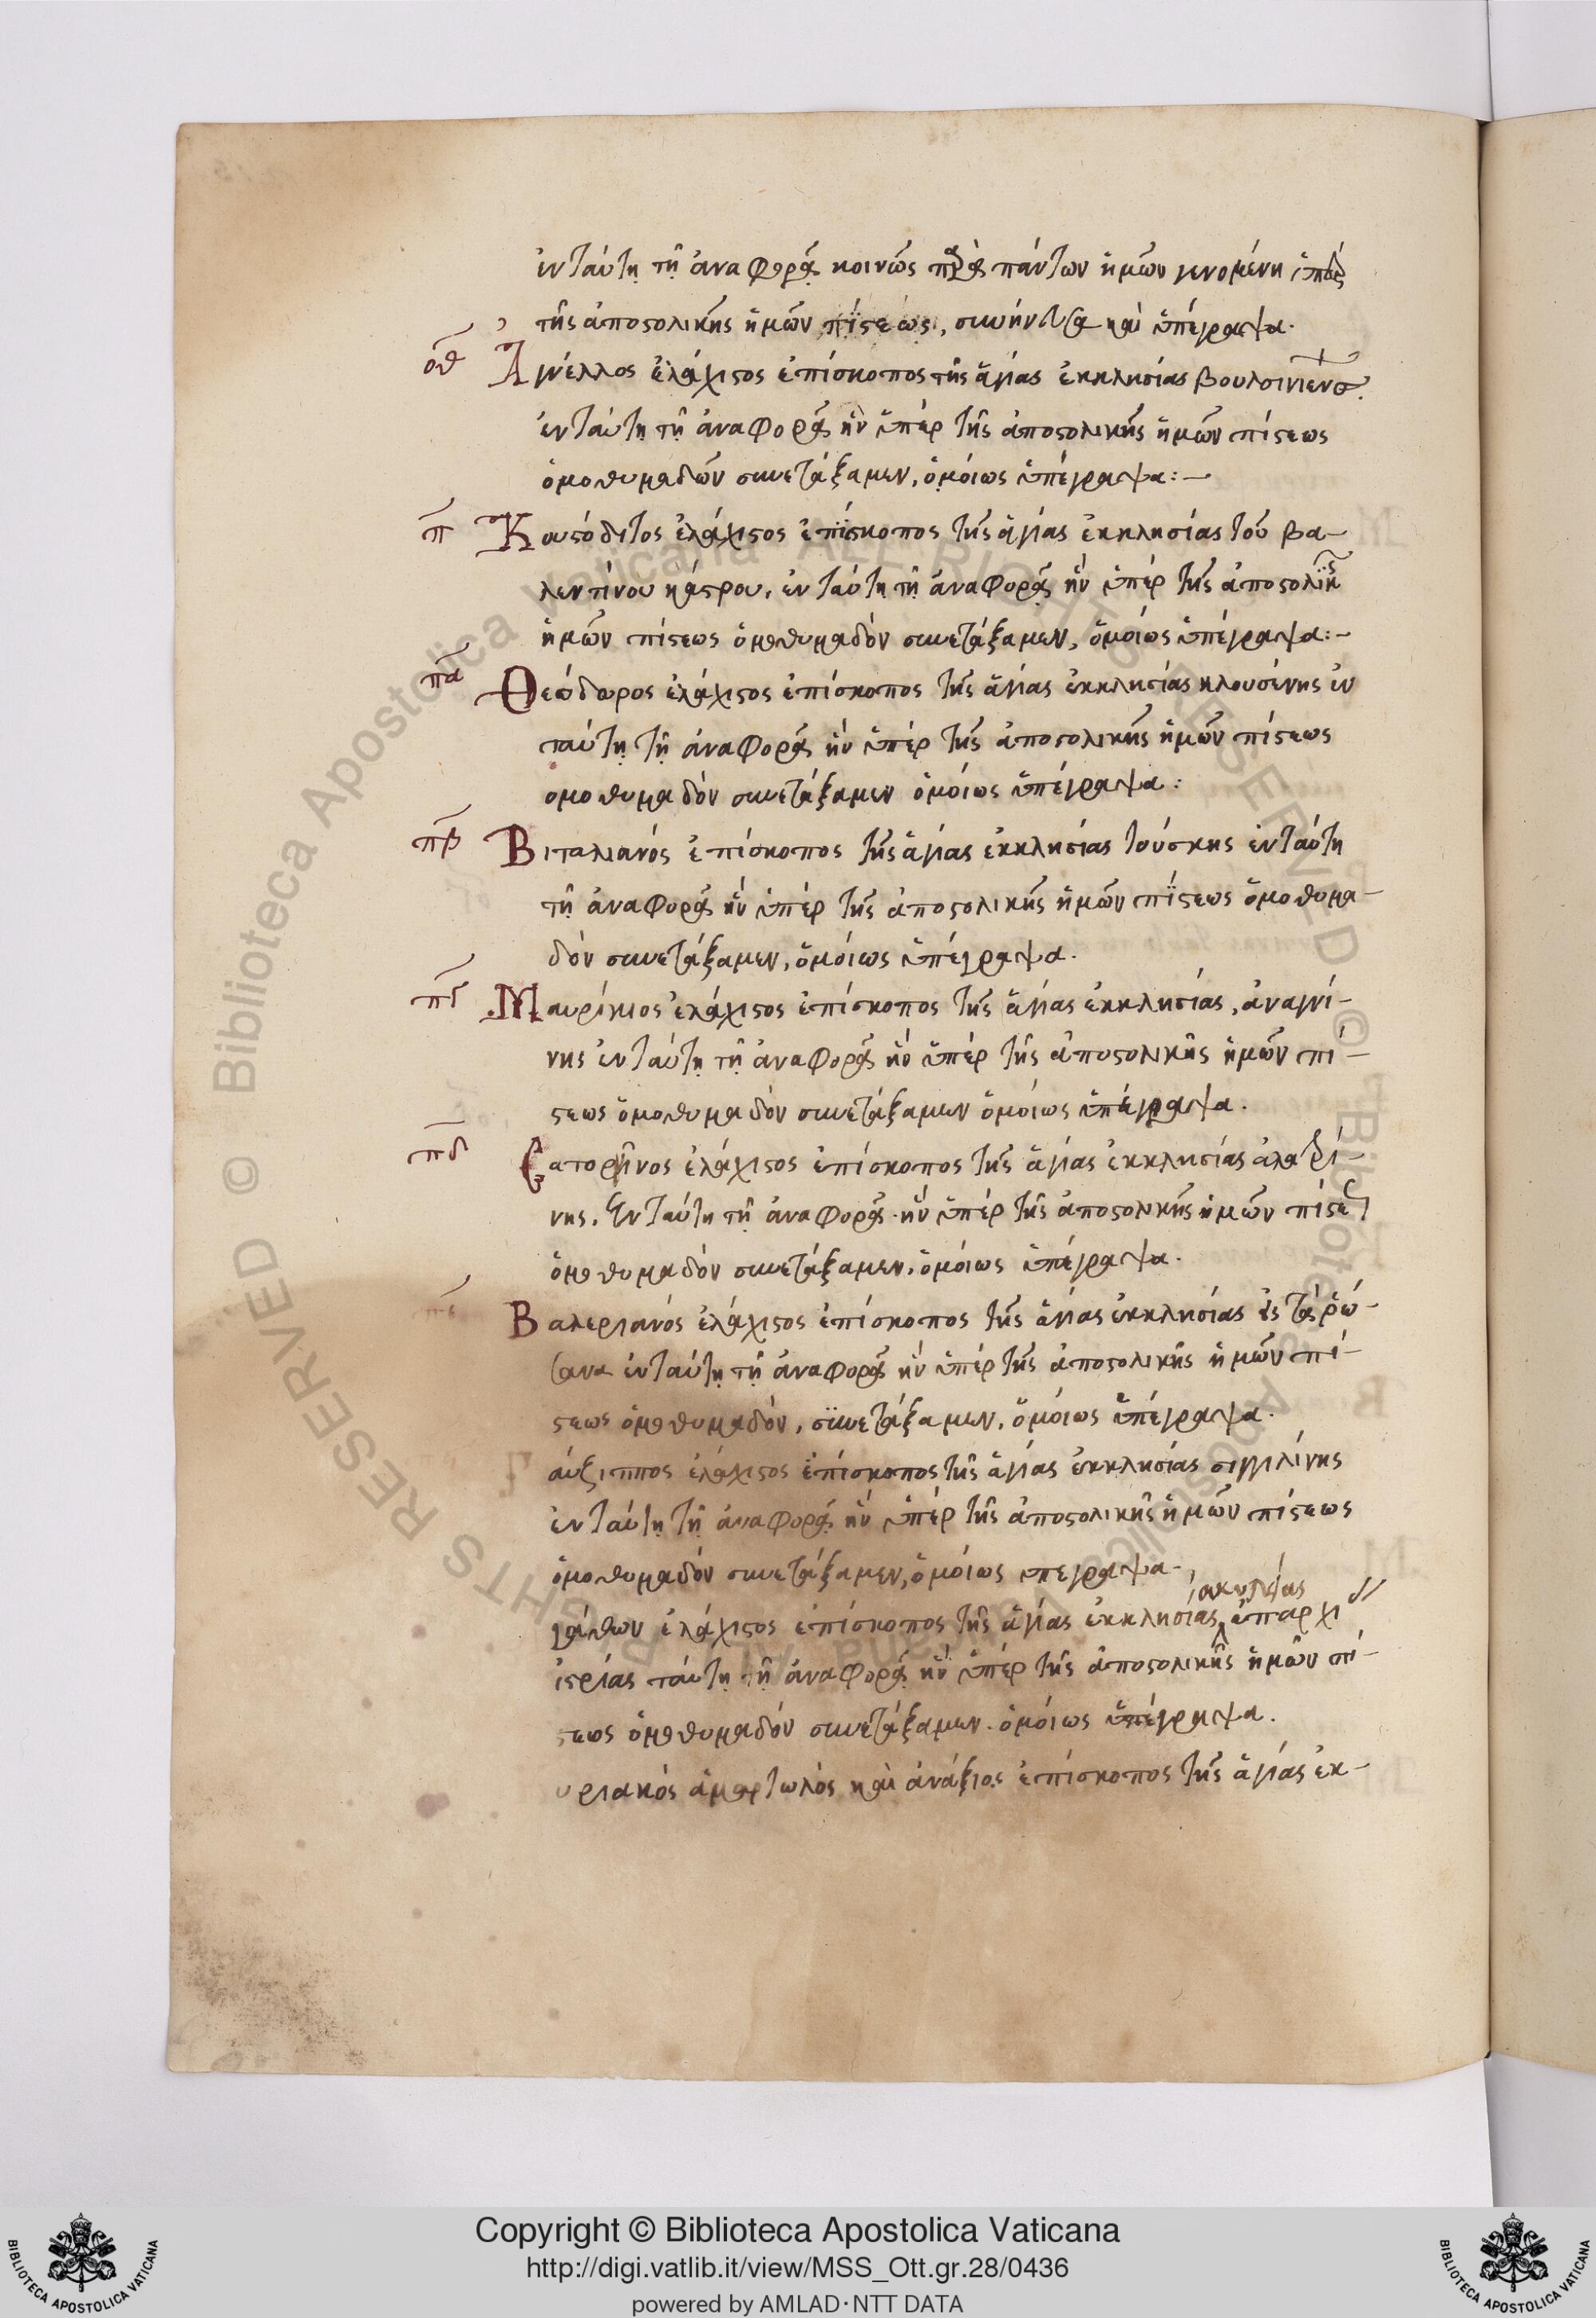 ἐν ταύτῃ τῇ ἀναφορᾷ κοινῶς παρὰ πάντων ἡμῶν γενομένη ὑπὲρ
τῆς ἀποστολικῆς ἡμῶν πίστεως, συνήνεσα καὶ ὑπέγραψα.
οθ Ἀγνέλλος ἐλάχιστος ἐπίσκοπος τῆς ἁγίας ἐκκλησίας βουλσινιενσ
ἐν ταύτῃ τῇ ἀναφορᾷ ἣν ὑπὲρ τῆς ἀποστολικῆς ἡμῶν πίστεως
ὁμοθυμαδὼν συνετάξαμεν, ὁμοίως ὑπέγραψα:—
π Κουστόδιτος ἐλάχιστος ἐπίσκοπος τῆς ἁγίας ἐκκλησίας τοῦ βα-
λεντίνου κάστρου, ἐν ταύτῃ τῇ ἀναφορᾷ ἣν ὑπὲρ τῆς ἀποστολικῆς
ἡμῶν πίστεως ὁμοθυμαδὸν συνετάξαμεν, ὁμοίως ὑπέγραψα:-
πα Θεόδωρος ἐλάχιστος ἐπίσκοπος τῆς ἁγίας ἐκκλησίας κλουσένης ἐν
ταύτῃ τῇ ἀναφορᾷ ἣν ὑπὲρ τῆς ἀποστολικῆς ἡμῶν πίστεως
ομοθυμαδὸν συνετάξαμεν ὁμοίως ὑπέγραψα:
πβ Βιταλιανός ἐπίσκοπος τῆς ἁγίας ἐκκλησίας τούσκης ἐν ταύτη
τῇ ἀναφορᾷ ἣν ὑπὲρ τῆς ἀποστολικῆς ἡμῶν πίστεως ὁμοθυμα-
δὸν συνετάξαμεν, ὁμοίως ὑπέγραψα.
πγ Μαυρίκιος ἐλάχιστος ἐπίσκοπος τῆς ἁγίας ἐκκλησίας, ἀναγνί-
νης ἐν ταύτῃ τῇ ἀναφορᾷ ἣν ὑπὲρ τῆς ἀποστολικῆς ἡμῶν πί-
στεως ὁμοθυμαδὸν συνετάξαμεν ὁμοίως ὑπέγραψα.
πδ Σατορῆνος ἐλάχιστος ἐπίσκοπος τῆς ἁγίας ἐκκλησίας ἀλατρί-
νης. Ἐν ταύτη τῇ ἀναφορᾷ. ἣν ὑπὲρ τῆς ἀποστολικῆς ἡμῶν πίστεως
ὁμοθυμαδὸν συνετάξαμεν, ὁμοίως ὑπέγραψα.
πε Βαλεριανός ἐλάχιστος ἐπίσκοπος τῆς ἁγίας ἐκκλησίας
ἐν ταύτῃ τῇ ἀναφορᾷ ἣν ὑπὲρ τῆς ἀποστολικῆς ἡμῶν πί-
στεως ὁμοθυμαδόν, συνετάξαμεν, ὁμοίως ὑπέγραψα.
αύξιππος ἐλάχιστος ἐπίσκοπος τῆς ἁγίας ἐκκλησίας σιγγιλίνης
ἐν ταύτῃ τῇ ἀναφορᾷ ἣν ὑπὲρ τῆς ἀποστολικῆς ἡμῶν πίστεως
ὁμοθυμαδὸν συνετάξαμεν, ὁμοίως υπεγραψα.
γάθων ἐλάχιστος ἐπίσκοπος τῆς ἁγίας ἐκκλησίας ἐπαρχι
ἰστρίας ταύτῃ τῇ ἀναφορᾷ ἣν ὑπὲρ τῆς ἀποστολικῆς ἡμῶν πί-
στεως ὁμοθυμαδόν συνετάξαμεν. ὁμοίως ὑπέγραψα.
υριακός ἁμαρτωλὸς καὶ ἀνάξιος ἐπίσκοπος τῆς ἁγίας ἐκ-
© Biblioteca Apostolica Vaticana ALL RIGHTS RESERVED
Copyright © Biblioteca Apostolica Vaticana
http://digi.vatlib.it/view/MSS_Ott.gr.28/0436
powered by AMLAD·NTT DATA
BIBLIOTECA APOSTOLICA VATICANA
BIBLIOTECA APOSTOLICA VATICANA